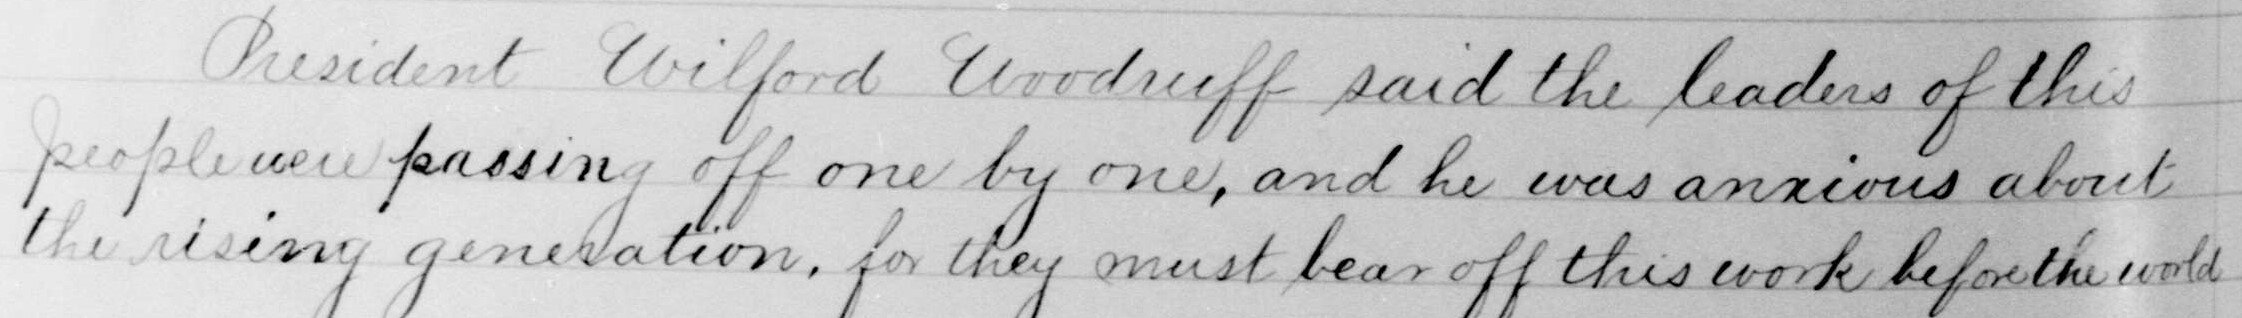 President Wilford Woodruff said the leaders of this
people were passing off one by one, and he was anxious about
the rising generation, for they must bear off this work before the world